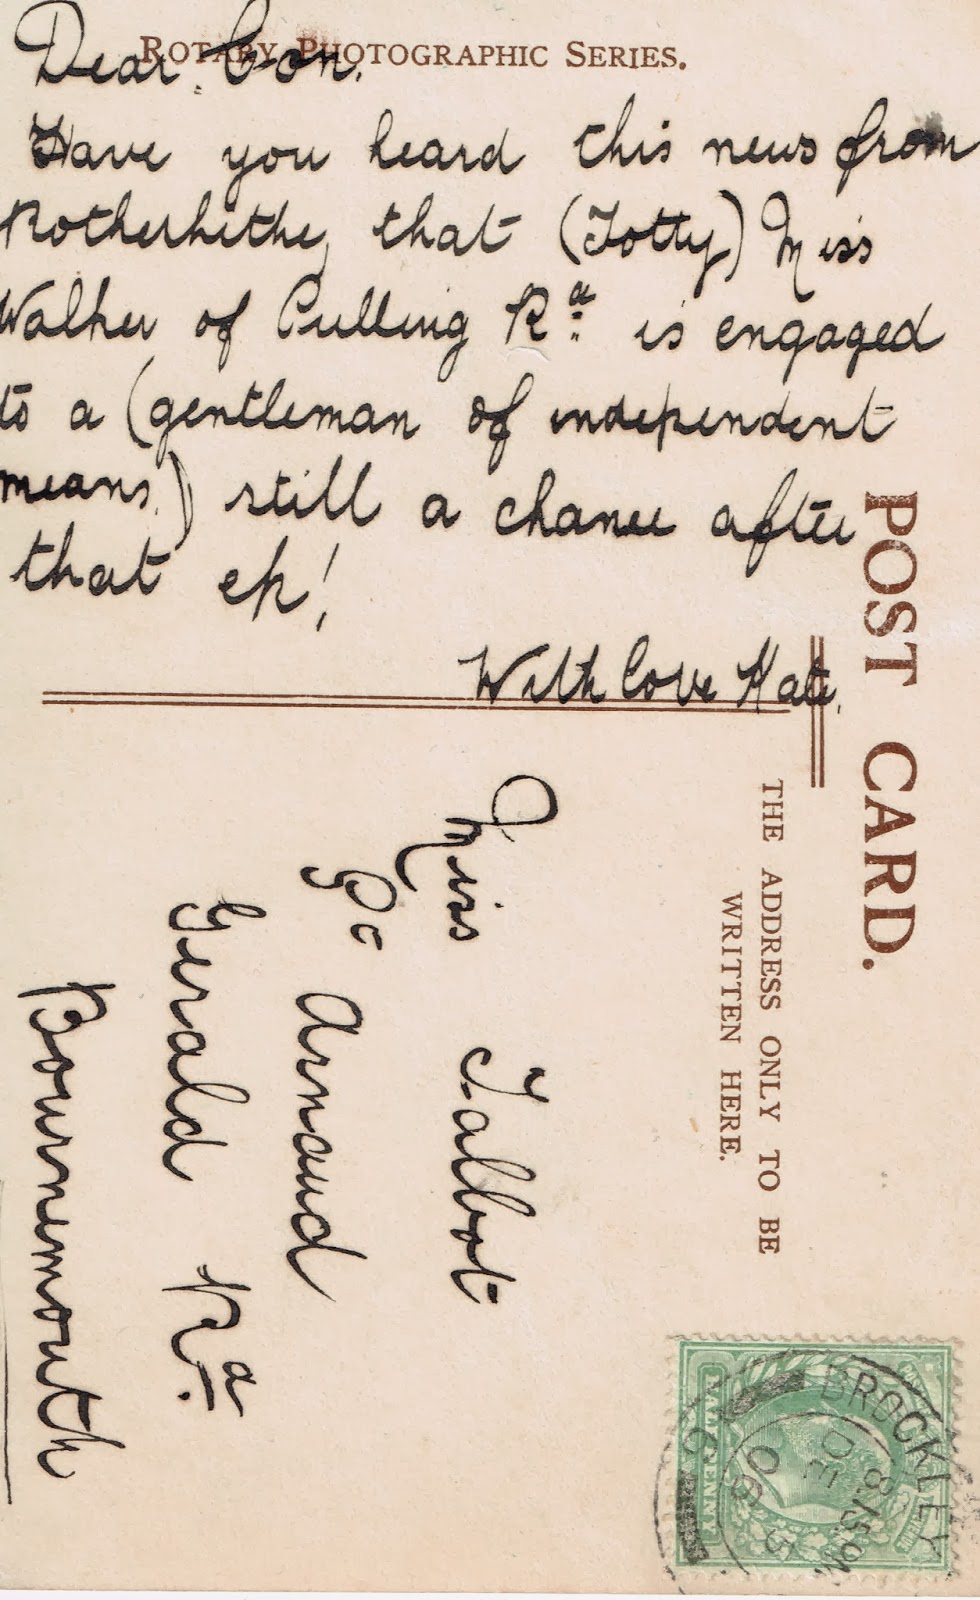 ROTARY PHOTOGRAPHIC SERIES.
Dear Con.
Have you heard this news from
Rotherhithe, that (Totty) Miss
Walker of Culling Rd. is engaged
to a (gentleman of independent
means.) still a chance after
that eh!
With love Kate.
POST CARD.
THE ADDRESS ONLY TO BE
WRITTEN HERE.
Miss Talbot
c/o Arnaud
Gerald Rd.
Bournemouth
BROCKLEY
8.15 PM
DE 5
06
HALFPENNY